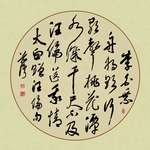 李白乘
舟将欲行
歌声桃花潭
水深千尺不及
汪伦送我情
太白赠汪伦